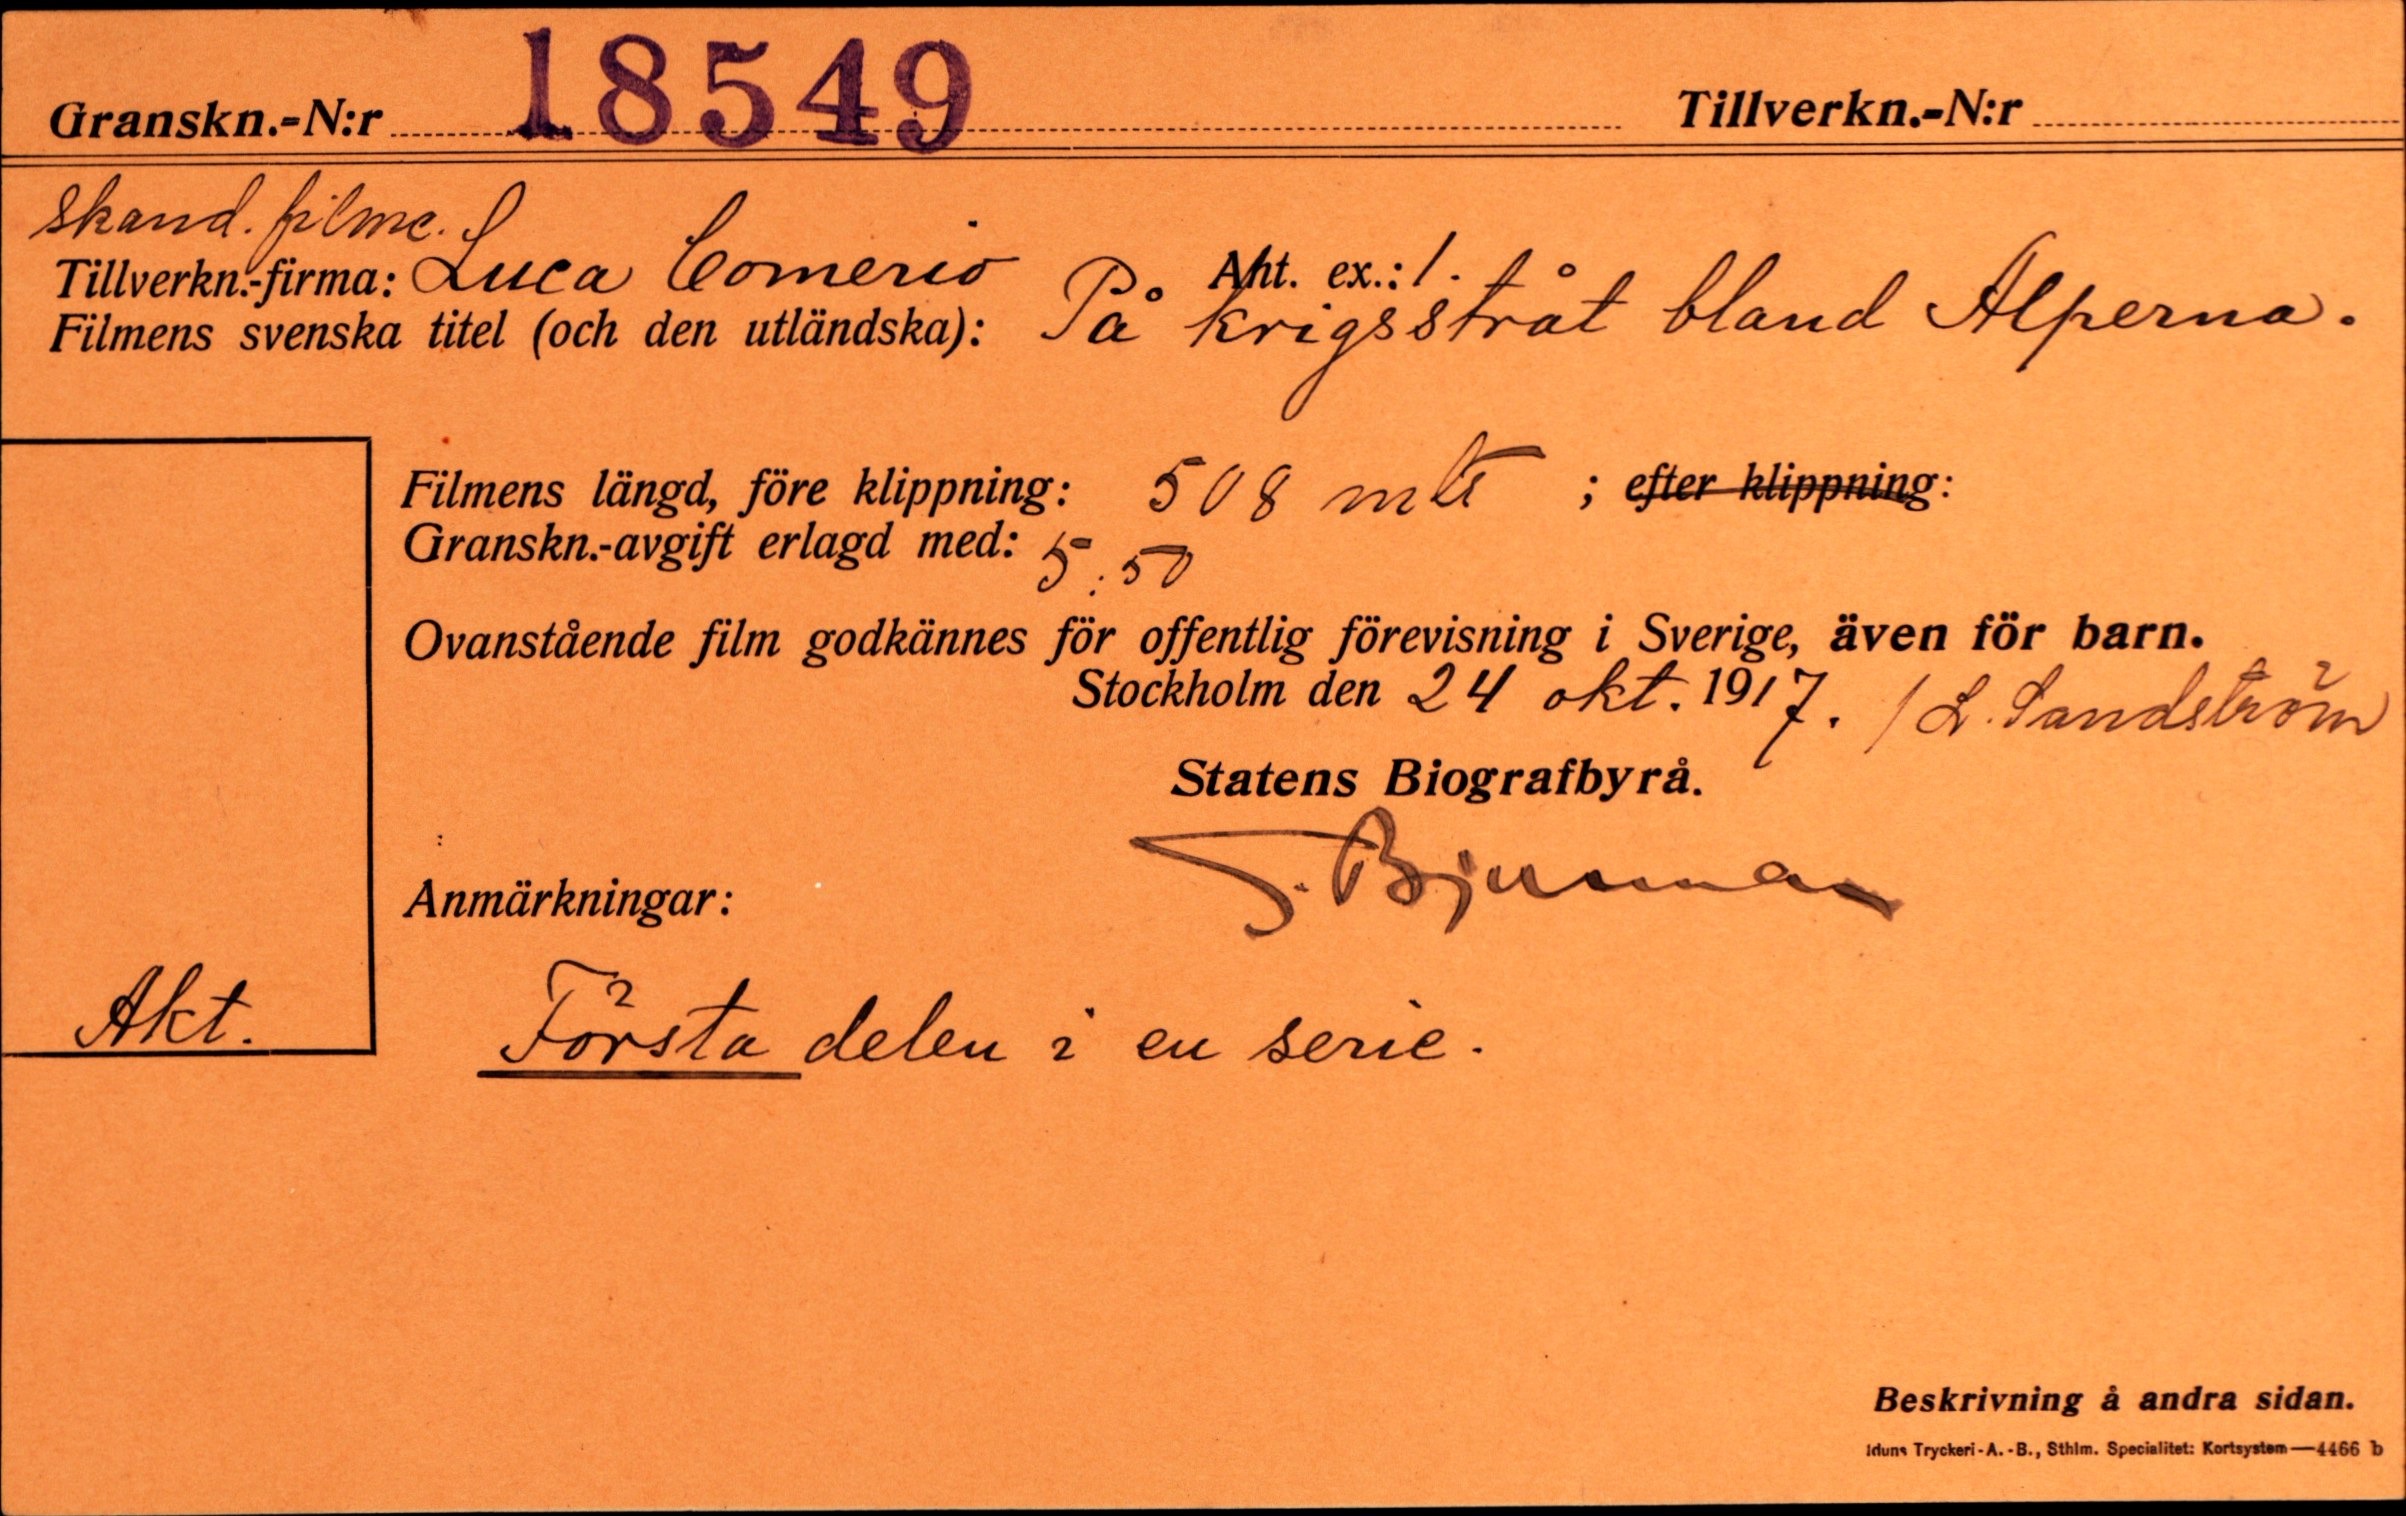 Granskn.-N:r 18549 Tillverkn.-N:r
Skand. filmc.
Tillverkn.-firma: Luca Comerio Ant. ex.: 1.
Filmens svenska titel (och den utländska): På krigsstråt bland Alperna.
Filmens längd, före klippning: 508 mtr ; efter klippning:
Granskn.-avgift erlagd med: 5.50
Ovanstående film godkännes för offentlig förevisning i Sverige, även för barn.
Stockholm den 24 okt. 1917. / L. Sandström
Statens Biografbyrå.
G. Bjurman
Anmärkningar:
Akt.
Första delen i en serie.
Beskrivning å andra sidan.
Iduns Tryckeri-A.-B., Sthlm. Specialitet: Kortsystem—4466 b